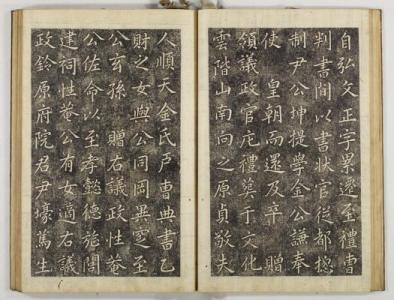 自弘文正字累遷至禮曹
判書間以書狀官從都摠
制尹公坤提學金公謙奉
使 皇朝而還及卒 贈
領議政官庀禮葬于文化
雲階山南向之原貞敬夫
人順天金氏戶曹典書乙
財之女與公同岡異窆至
公玄孫 贈右議政性菴
公佐命以至孝懿德旌閭
建祠性菴公有女適右議
政鈴原府院君尹壕篤生